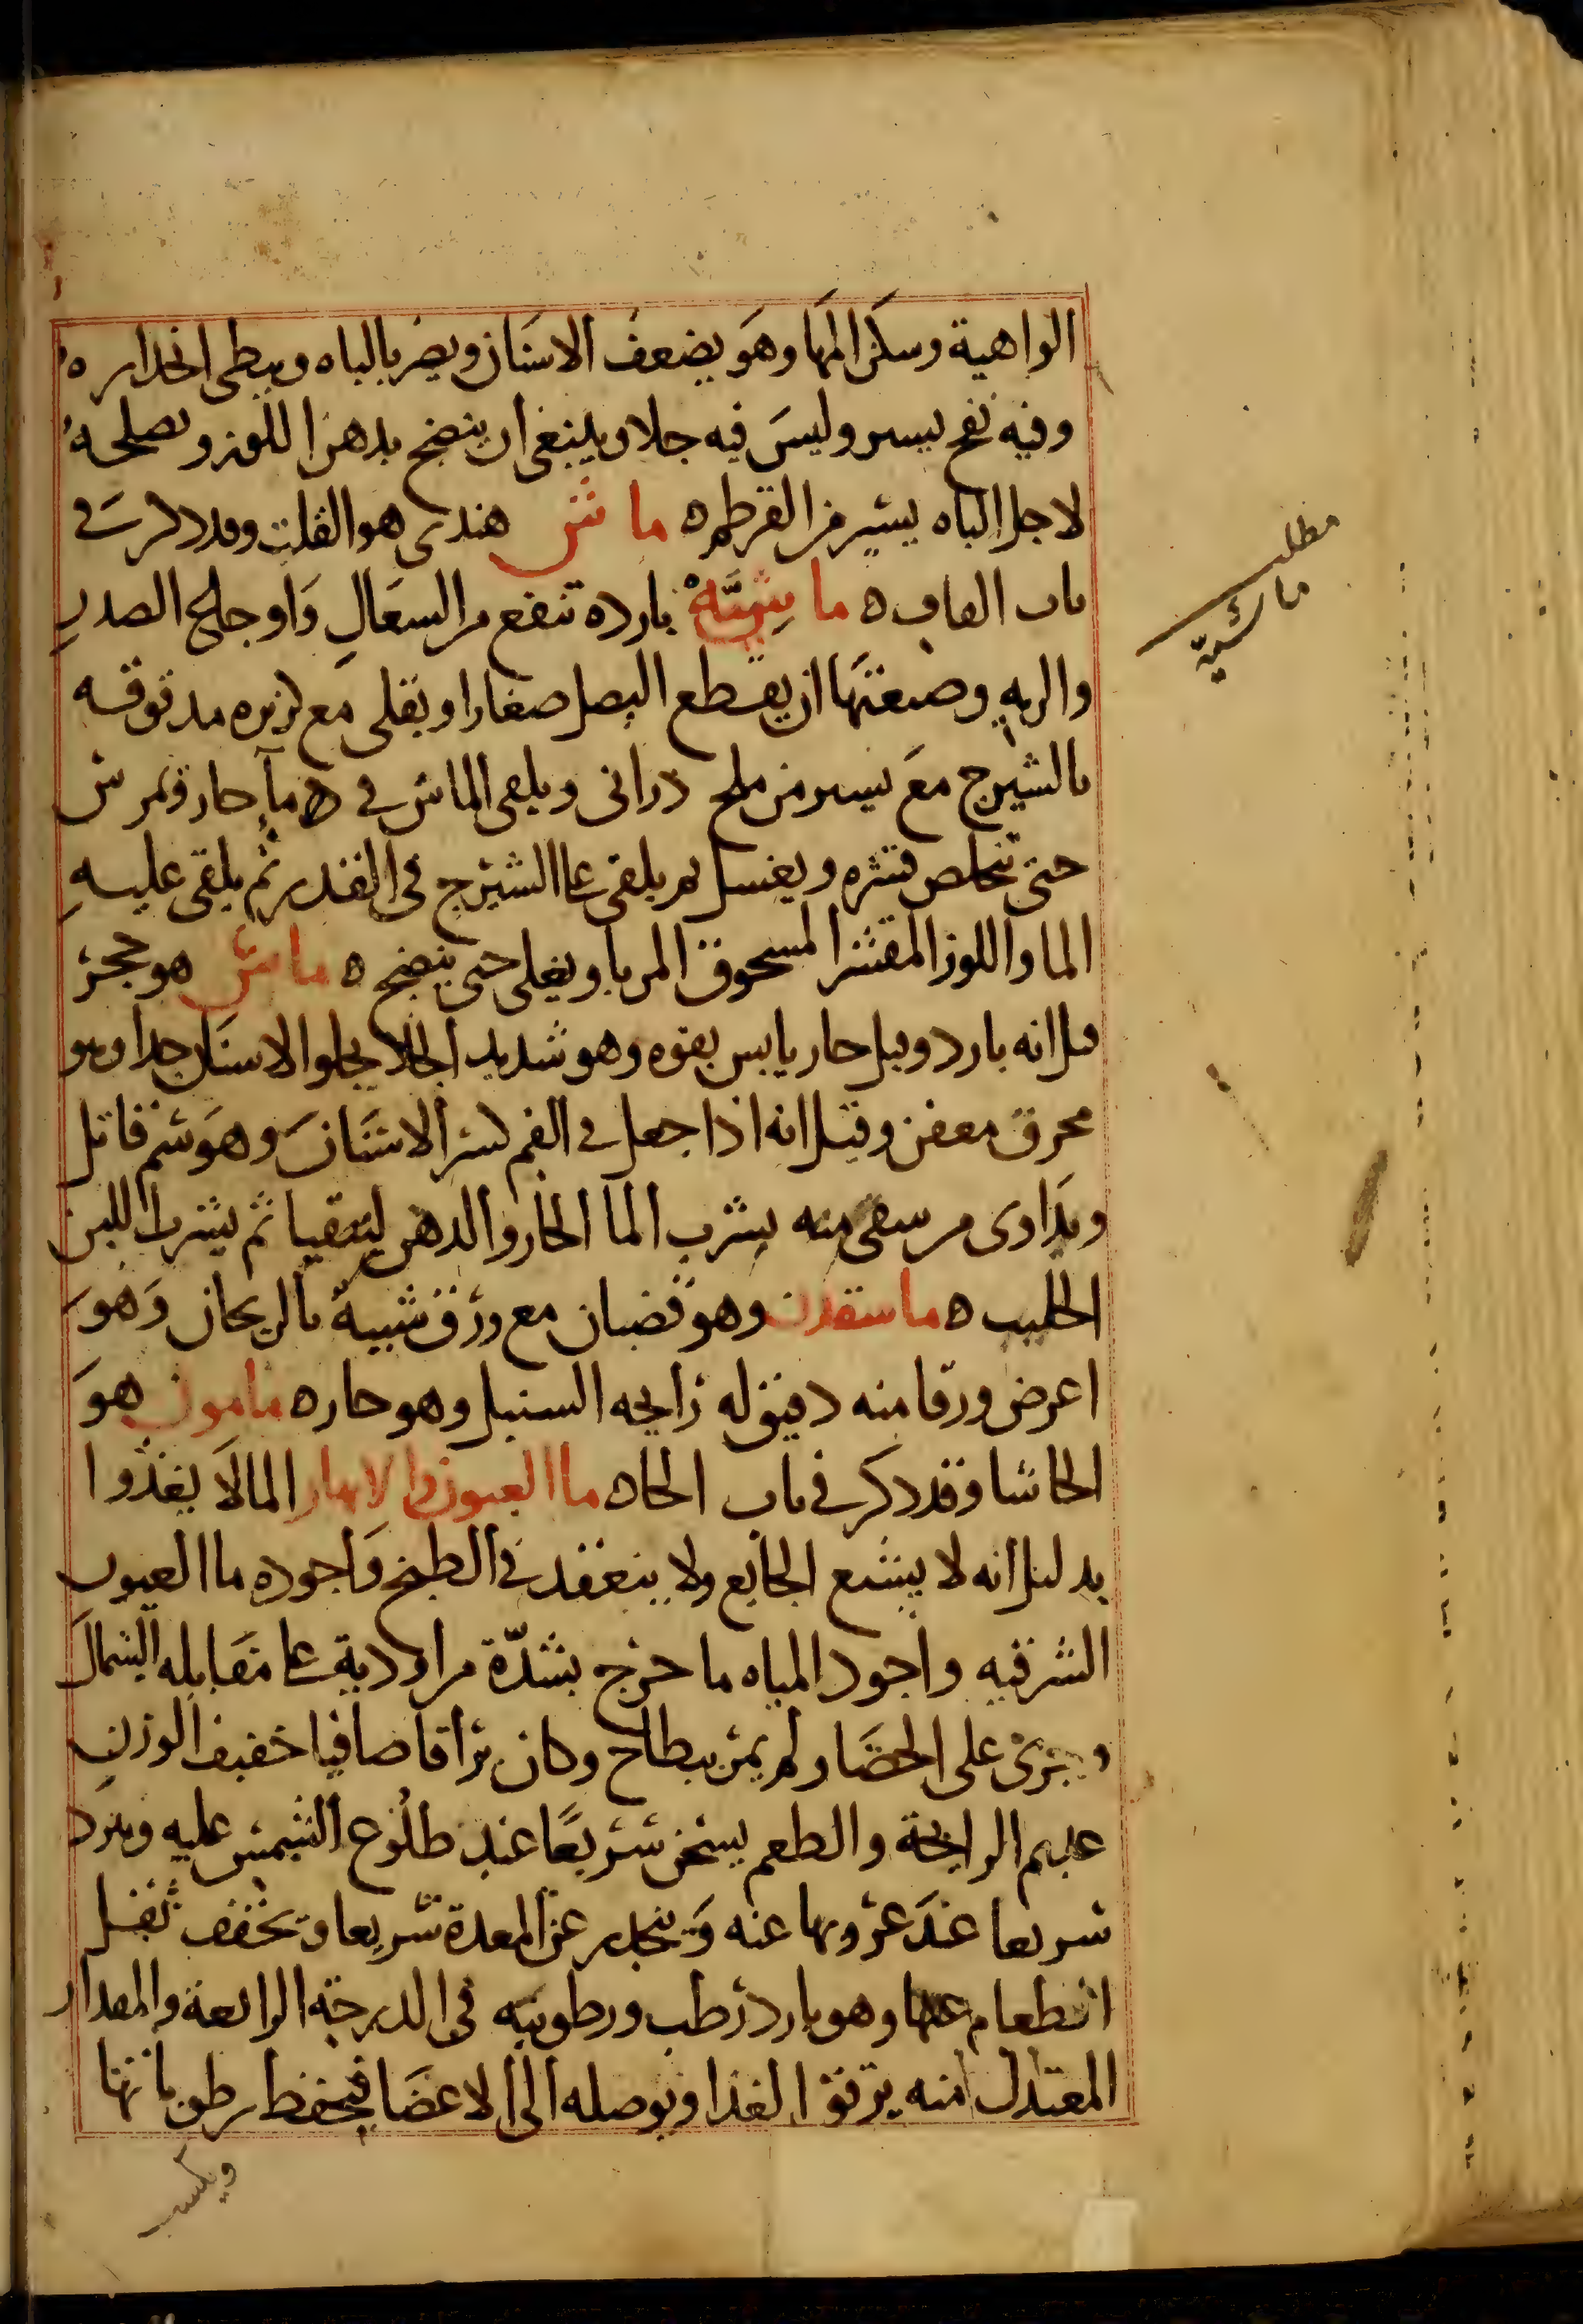 الواهية وسكن المها وهو يضعف الاسنان ويضر بالباه ويبطى انحداره
وفيه نفخ يسير وليس فيه جلا وينبغى ان ينضج بدهن اللوز ويصلحه
لاجل الباه يسير من القرطم ه ماش هندى هو القلت وقد ذكر فى
باب القاف ه ماشيّة بارده تنفع من السعال واوجاع الصدر
والريه وصنعتها ان يقطع البصل صغارا ويقلى مع كزبره مدقوقه
بالشيرج مع يسير من ملح درانى ويلقى الماش فى ماء حار ويمرش
حتى تتخلص قشره ويغسل ثم يلقى على الشيرج فى القدر ثم يلقى عليه
الما واللوز المقشر المسحوق المربا ويغلى حتى ينضج ه ماش هو حجر
قيل انه بارد وقيل حار يابس بقوه وهو شديد الجلا يجلوا الاسنان جدا وهو
محرق معفن وقيل انه اذا جعل فى الفم كسر الاسنان وهو سم قاتل
ويداوى من سقى منه بشرب الما الحار والدهن ليتقيا ثم يشرب اللبن
الحليب ه ماسفدن وهو قضبان مع ورق شبيه بالريحان وهو
اعرض ورقا منه دقيق له رايحه السنبل وهو حار ه مامون هو
الحاشا وقد ذكر فى باب الحا ه ما العيون والانهار الما لا يغذوا
بدليل انه لا يشبع الجايع ولا ينعقد فى الطبخ واجوده ما العيون
الشرقيه واجود المياه ما خرج بشدّة من اودية على مقابله الشمال
ويجرى على الحصا ولم يمر ببطاح وكان براقا صافيا خفيف الوزن
عديم الرايحة والطعم يسخن سريعا عند طلوع الشمس عليه ويبرد
سريعا عند غروبها عنه وينحدر عن المعدة سريعا ويخفف ثقل
الطعام عنها وهو بارد رطب ورطوبته فى الدرجة الرابعة والمقدار
المعتدل منه يرقق الغذا ويوصله الى الاعضا فيحفظ رطوباتها
ويكسب
مطلب
ماشيّة